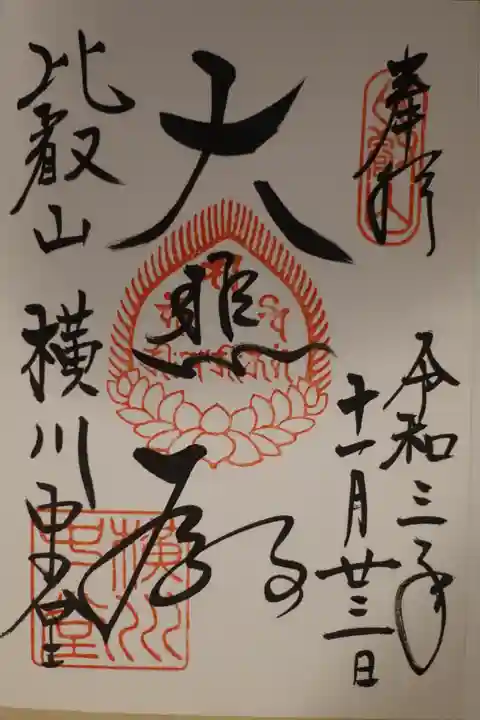 奉拝
令和三年
十一月廿三日
大悲殿
比叡山 横川中堂
横川
中堂